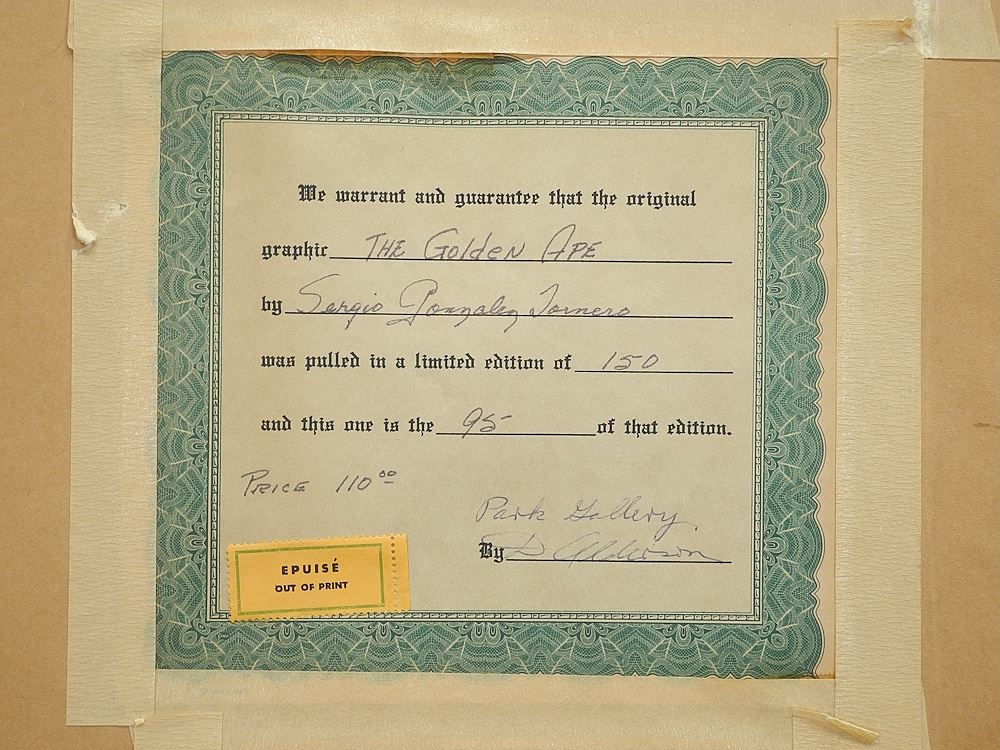 We warrant and guarantee that the original
graphic THE Golden APE
by Sergio Gonzalez Tornero
was pulled in a limited edition of 150
and this one is the 95 of that edition.
PRICE 110 00
Park Gallery.
By D Alderson
EPUISÉ
OUT OF PRINT